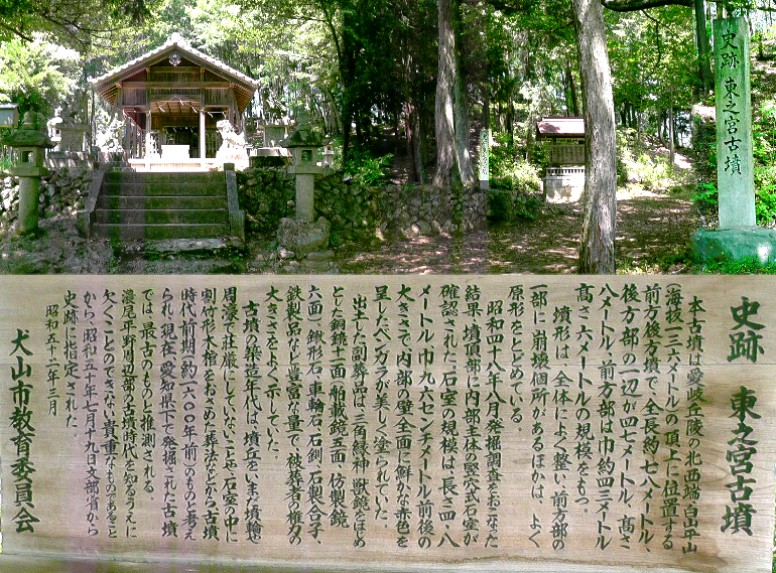 史跡 東之宮古墳
史跡 東之宮古墳
本古墳は愛岐丘陵の北西端、白山平山
(海抜一三六メートル)の頂上に位置する
前方後方墳で、全長約七八メートル、
後方部の一辺が四七メートル、高さ
八メートル、前方部は巾約四三メートル
高さ六メートルの規模をもつ。
墳形は、全体によく整い、前方部の
一部に崩壊個所があるほかは、よく
原形をとどめている。
昭和四十八年八月発掘調査をおこなた
結果、墳頂部に内部主体の竪穴式石室が
確認された。石室の規模は、長さ四・八
メートル巾〇・九六センチメートル前後の
大きさで、内部の壁全面に鮮かな赤色を
呈したベンガラが美しく塗られていた。
出土した副葬品は、三角縁神獣鏡をはじめ
とした銅鏡十一面(舶載鏡五面、仿製鏡
六面)、鍬形石、車輪石、石釧、石製合子、
鉄製品など豊富な量で、被葬者の権力の
大きさをよく示していた。
古墳の築造年代は、墳丘をいまだ埴輪や
周濠で荘厳にしていないことや、石室の中に
割竹形木棺をおさめた葬法などから古墳
時代、前期(約一六〇〇年前)のものと考え
られ、現在、愛知県下で発掘された古墳
では、最古のものと推測される。
濃尾平野周辺部の古墳時代を知るうえに
欠くことのできない貴重なものであること
から、昭和五十年七月十九日文部省から
史跡に指定された。
昭和五十一年三月
犬山市教育委員会